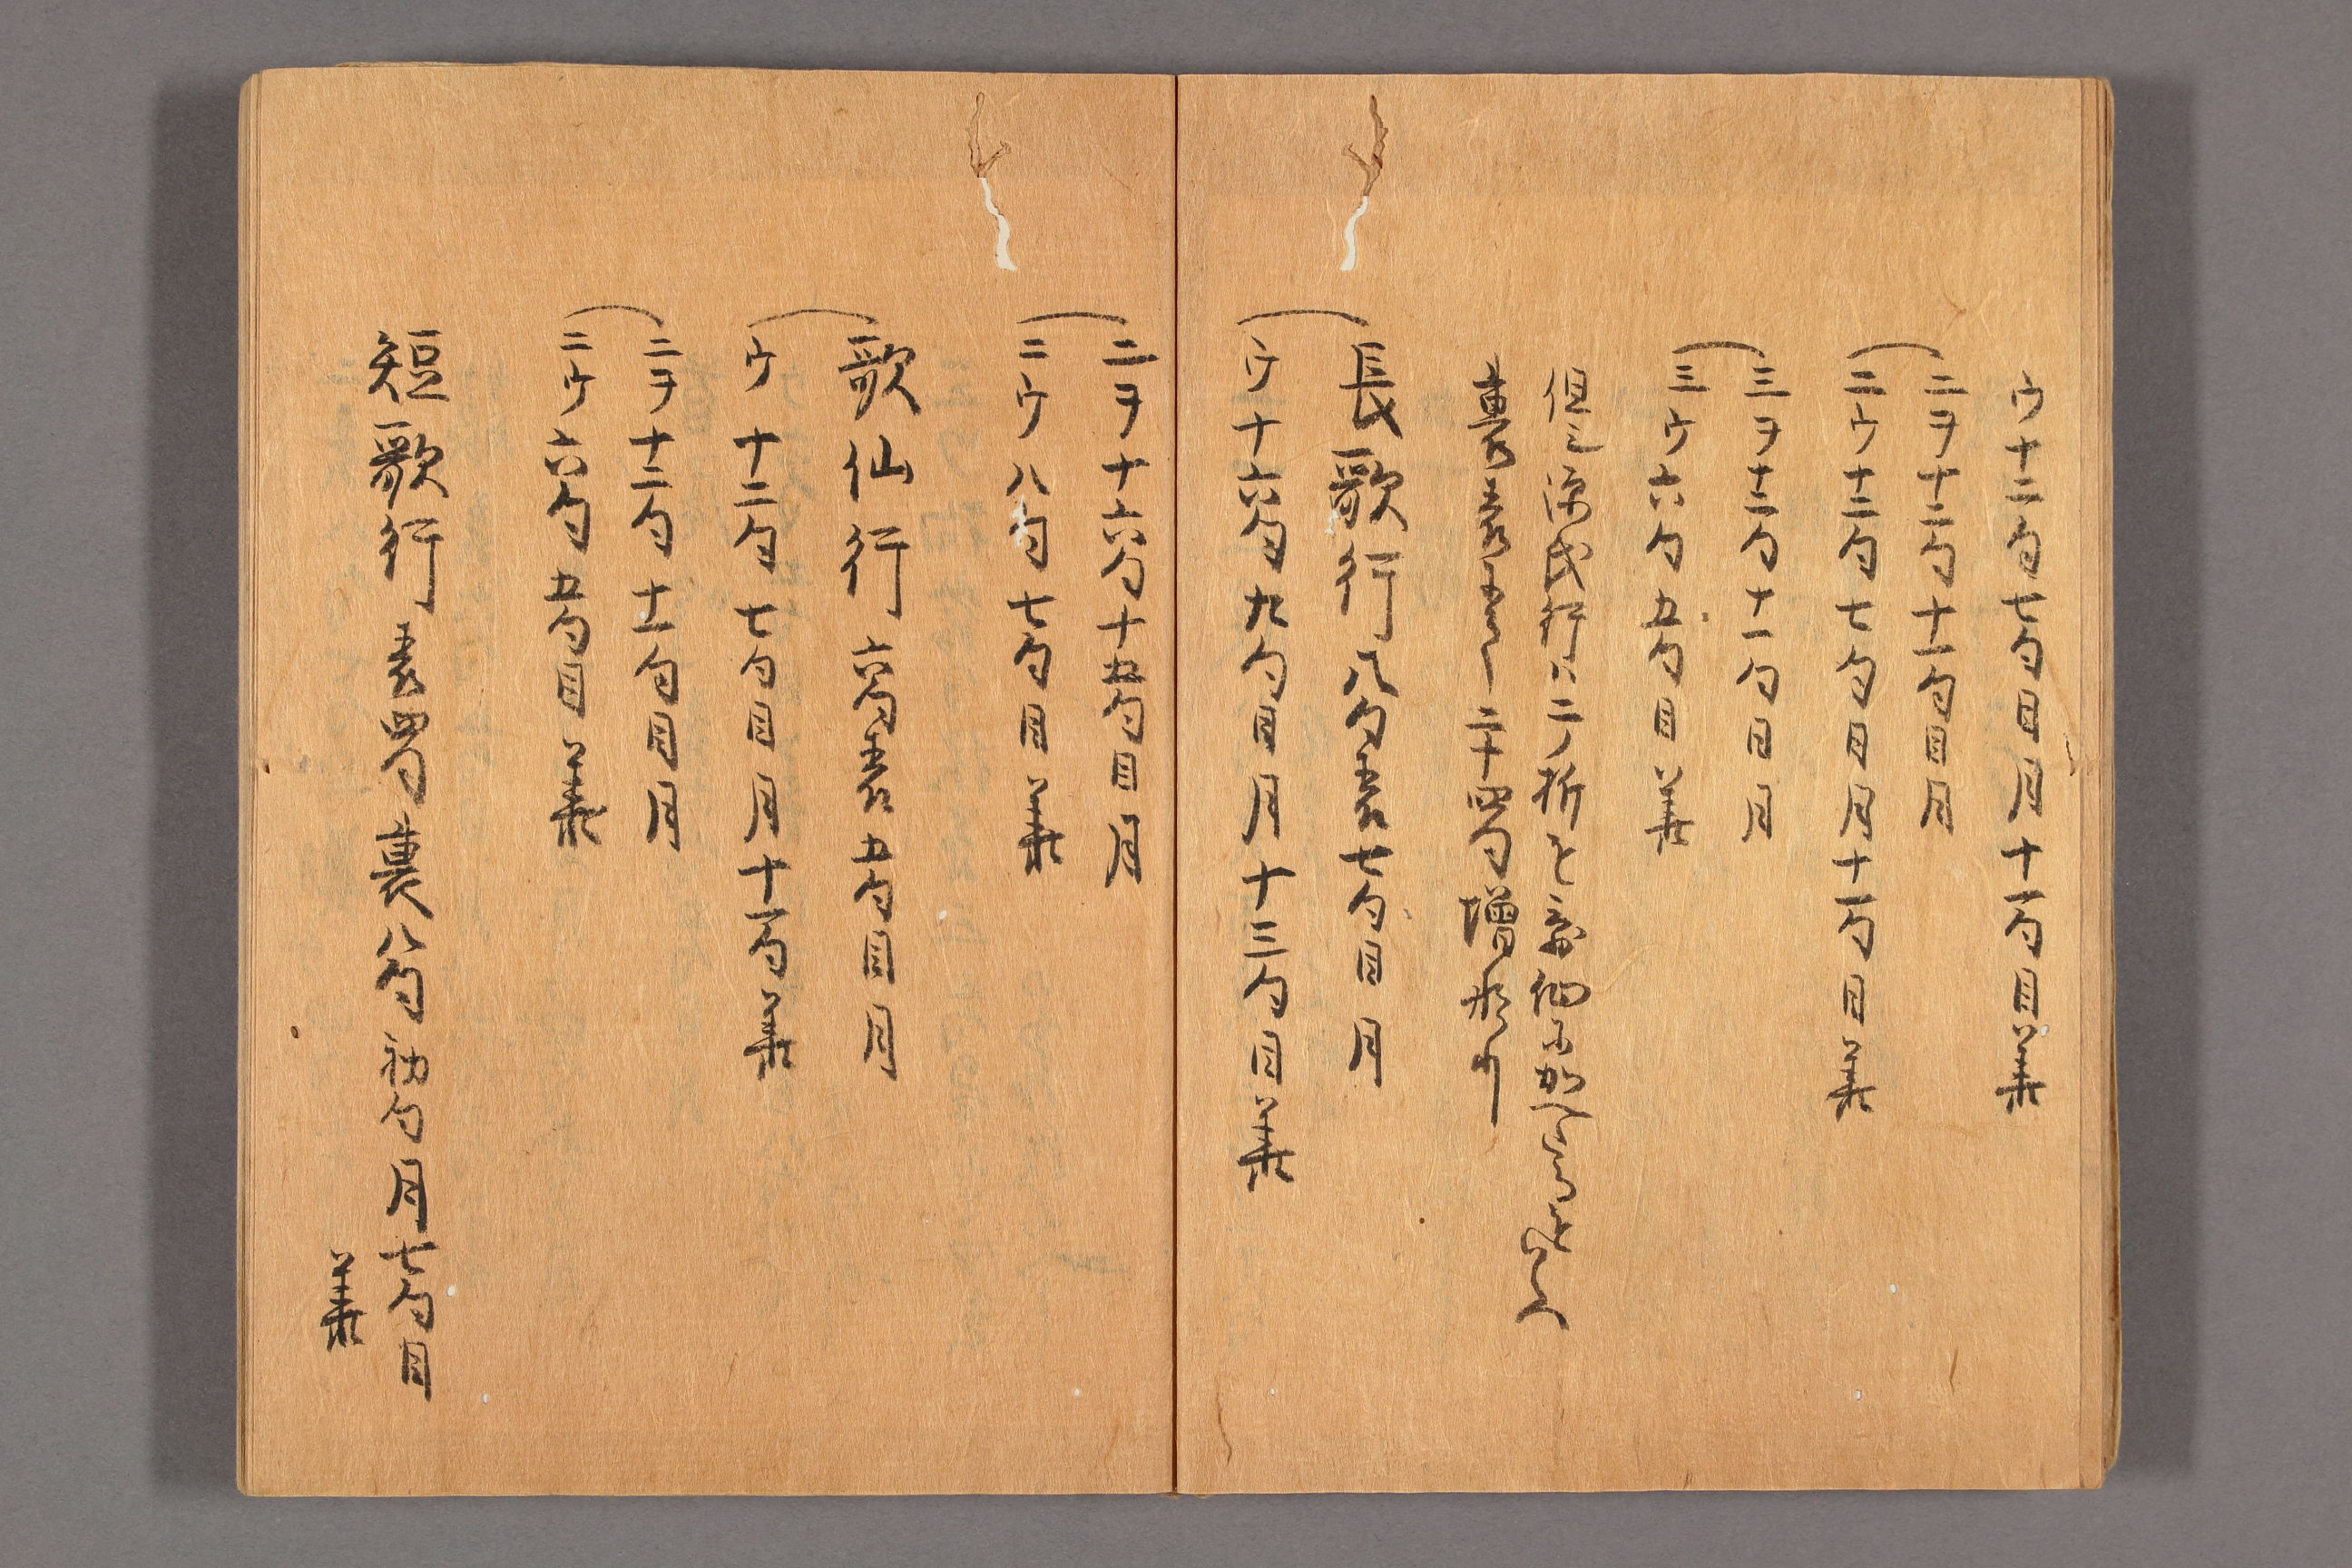 ウ十二句七句目月十一句目花
二ヲ十二句十一句目月
二ウ十二句七句目月十一句目花
三ヲ十二句十一句目月
三ウ六句五句目花
但シ源氏行ハ二ノ折を
裏表 二十四句増
長歌行八句表七句目月
ウ十六句九句目月十三句目花
二ヲ十六句十五句目月
二ウ八句七句目花
歌仙行六句表五句目月
ウ十二句七句目月十一句花
二ヲ十二句十一句目月
二ウ六句五句目花
短歌行表四句裏八句初句月七句目
花